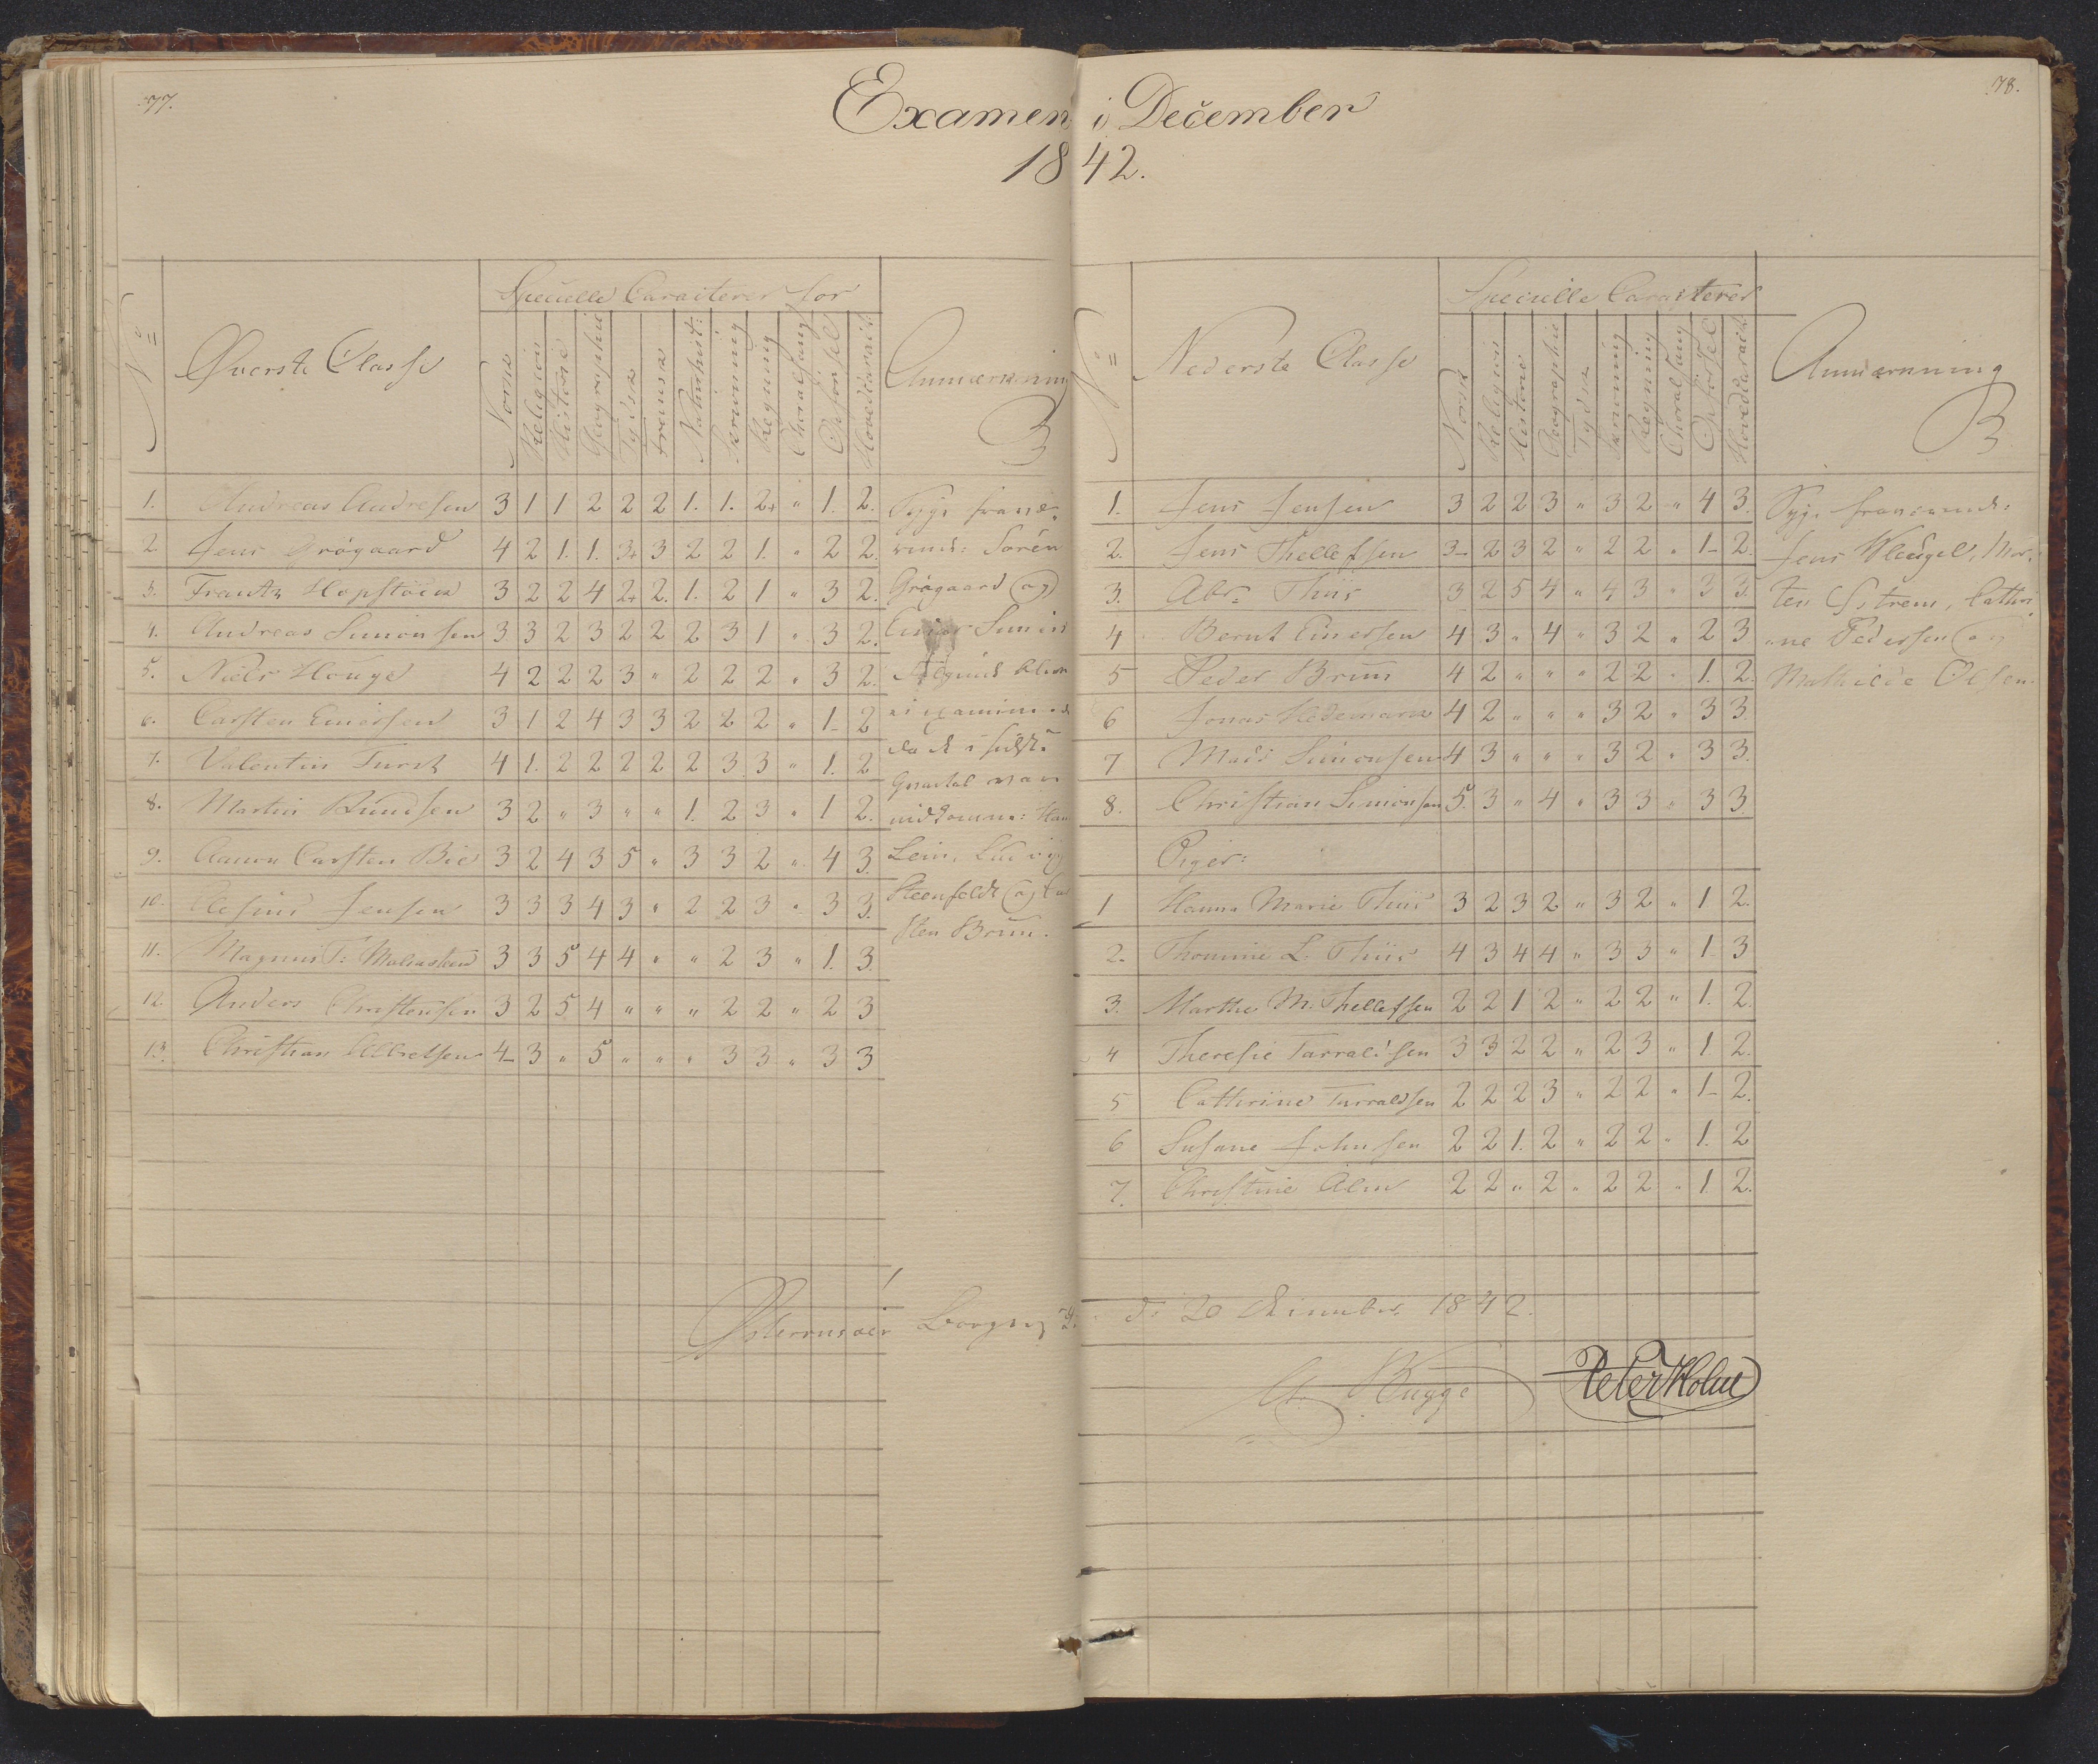 77.
78.
Examen i December
1842.
No
Øverste Classe
Specielle Caracterer for
Norsk
Religion
Historie
Geographie
Tydsk
Fransk
Naturhist:
Skrivning
Regning
Choralsang
Opførsel
Hovedcarakt:
Anmærkning
1. Andreas Andresen 3 1 1 2 2 2 1. 1. 2+ " 1. 2.
2 Jens Grögaard 4 2 1. 1. 3+ 3 2 2 1. " 2 2.
3. Frantz Hopstock 3 2 2 4 2+ 2. 1. 2 1 " 3 2.
4. Andreas Simonsen 3 3 2 3 2 2 2 3 1 " 3 2.
5. Niels Houge 4 2 2 2 3 " 2 2 2 " 3 2.
6. Carsten Einersen 3 1 2 4 3 3 2 2 2 " 1- 2
7. Valentin Furst 4 1. 2 2 2 2 2 3 3 " 1. 2
8. Martin Knudsen 3 2 " 3 " " 1. 2 3 " 1 2.
9. Aanon Carsten Bie 3 2 4 3 5 " 3 3 2 " 4 3.
10. Jensen 3 3 3 4 3 " 2 2 3 " 3 3.
11. Magnus T: 3 3 5 4 4 " " 2 3 " 1. 3.
12. Anders Christensen 3 2 5 4 " " " 2 2 " 2 3
13. Christian Albretsen 4- 3 " 5 " " " 3 3 " 3 3
Syge fravæ-
rende: Sören
Grögaard og
Simons
blev
ei examineret
da de i sidste
Qvartal vare
indkomne: Han
Lein, Ludvig
Steenfeldt og Car
sten Bruun.
No
Nederste Classe
Specielle Caracterer
Norsk
Religion
Historie
Geographie
Tydsk
Skrivning
Regning
Choralsang
Opførsel
Hovedcarakt:
Anmærkning
1. Jens Jensen 3 2 2 3 " 3 2 " 4 3.
2. Jens Thellefsen 3- 2 3 2 " 2 2 " 1- 2.
3. Abr: Thiis 3 2 5 4 " 4 3 " 3 3.
4 Bernt Einersen 4 3 " 4 " 3 2 " 2 3
5 Peder Bruun 4 2 " " " 2 2 " 1. 2.
6 Jonas Hedemark 4 2 " " " 3 2 " 3 3.
7 Mads Simonsen 4 3 " " " 3 2 " 3 3.
8. Christian Simonsen 5. 3 " 4 " 3 3 " 3 3.
Piger:
1 Hanna Marie Thiis 3 2 3 2 " 3 2 " 1 2.
2. Thomine L. Thiis 4 3 4 4 " 3 3 " 1- 3
3. Marthe M. Thellefsen 2 2 1 2 " 2 2 " 1. 2.
4 Theresie Tarraldsen 3 3 2 2 " 2 3 " 1. 2.
5 Cathrine Tarraldsen 2 2 2 3 " 2 2 " 1- 2.
6 Susane Johnsen 2 2 1. 2 " 2 2 " 1. 2
7. Christine Alm 2 2 " 2 " 2 2 " 1. 2.
Syge fraværende:
Jens Kleugel, Mor-
ten Estrem, Cathri-
ne Pedersen og
Mathilde Olsen.
Østerriisøer Borger d: 20 December 1842.
Bugge
Peter Holm